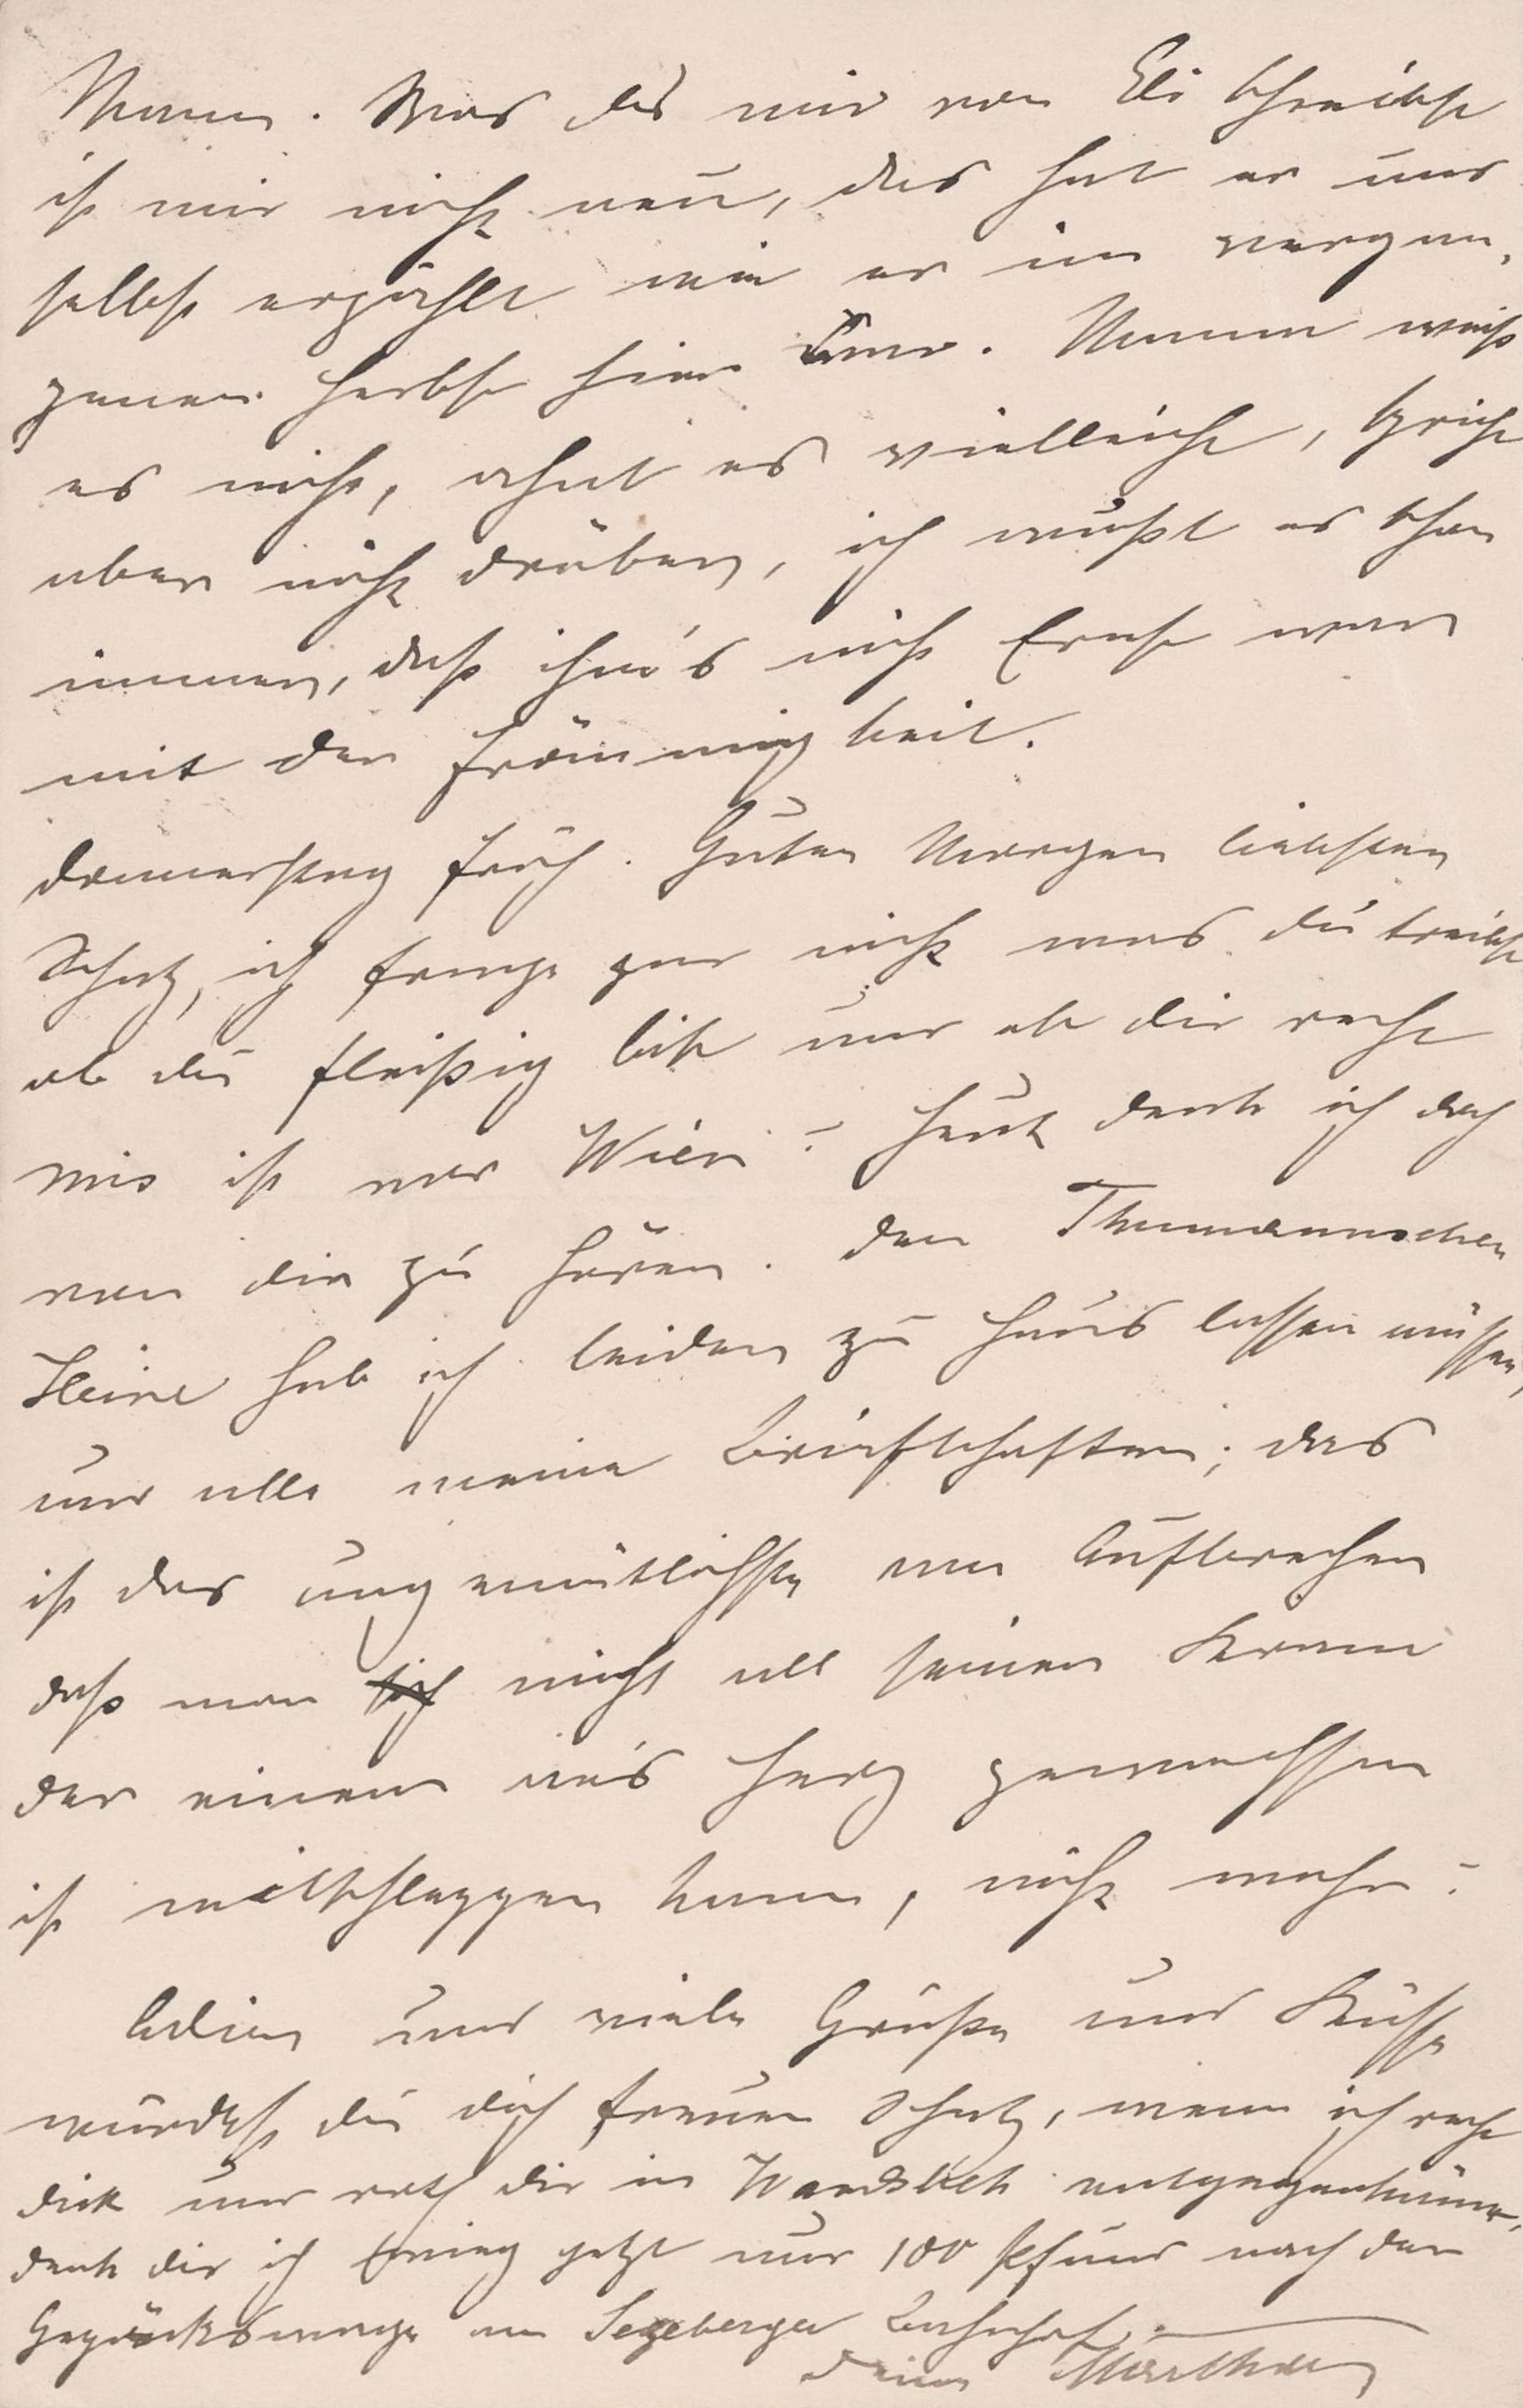 Mama. Was du mir von Eli schreibst
ist mir nicht neu, das hat er uns
selbst erzählt wie er im vergan-
genen Herbst hier war. Mama weiß
es nicht, ahnt es vielleicht, spricht
aber nicht drüber, ich wußt es schon
immer, daß ihm's nicht Ernst war
mit der Frömmigkeit.
Donnerstag früh. Guten Morgen liebster
Schatz, ich frage gar nicht was du treibst
ob du fleißig bist und ob dir recht
mis ist vor Wien? Heut denk ich doch
von dir zu hören. Den Thumannschen
Heine hab ich leider zu Haus lassen müssen,
und alle meine Briefschaften; das
ist das ungemütlichste am Aufbrechen
daß man sich nicht all seinen Kram
der einem an's Herz gewachsen
ist mitschleppen kann, nicht wahr?
Adieu und viele Grüße und Küsse
würdest du dich freuen Schatz, wenn ich recht
dick und roth dir in Wandsbek entgegenkäme,
denk dir ich wieg jetzt nur 100 Pfund nach der
Gepäckswage am Segeberger Bahnhof.
Deine Martha